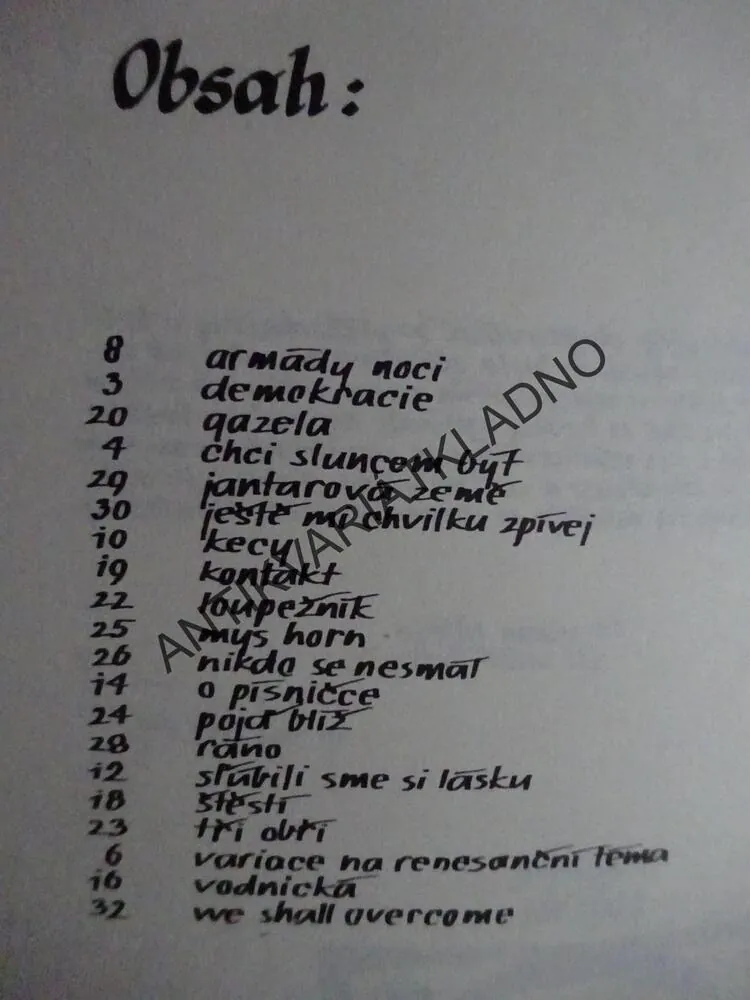 Obsah:
8 armády noci
3 demokracie
20 gazela
4 chci sluncem být
29 jantarová země
30 ještě mi chvilku zpívej
10 kecy
19 kontakt
22 loupežník
25 mys horn
26 nikdo se nesmál
14 o písničce
24 pojď blíž
28 ráno
12 slúbili sme si lásku
18 štěstí
23 tři obři
6 variace na renesanční téma
16 vodnická
32 we shall overcome
ANTIKVARIÁT KLADNO